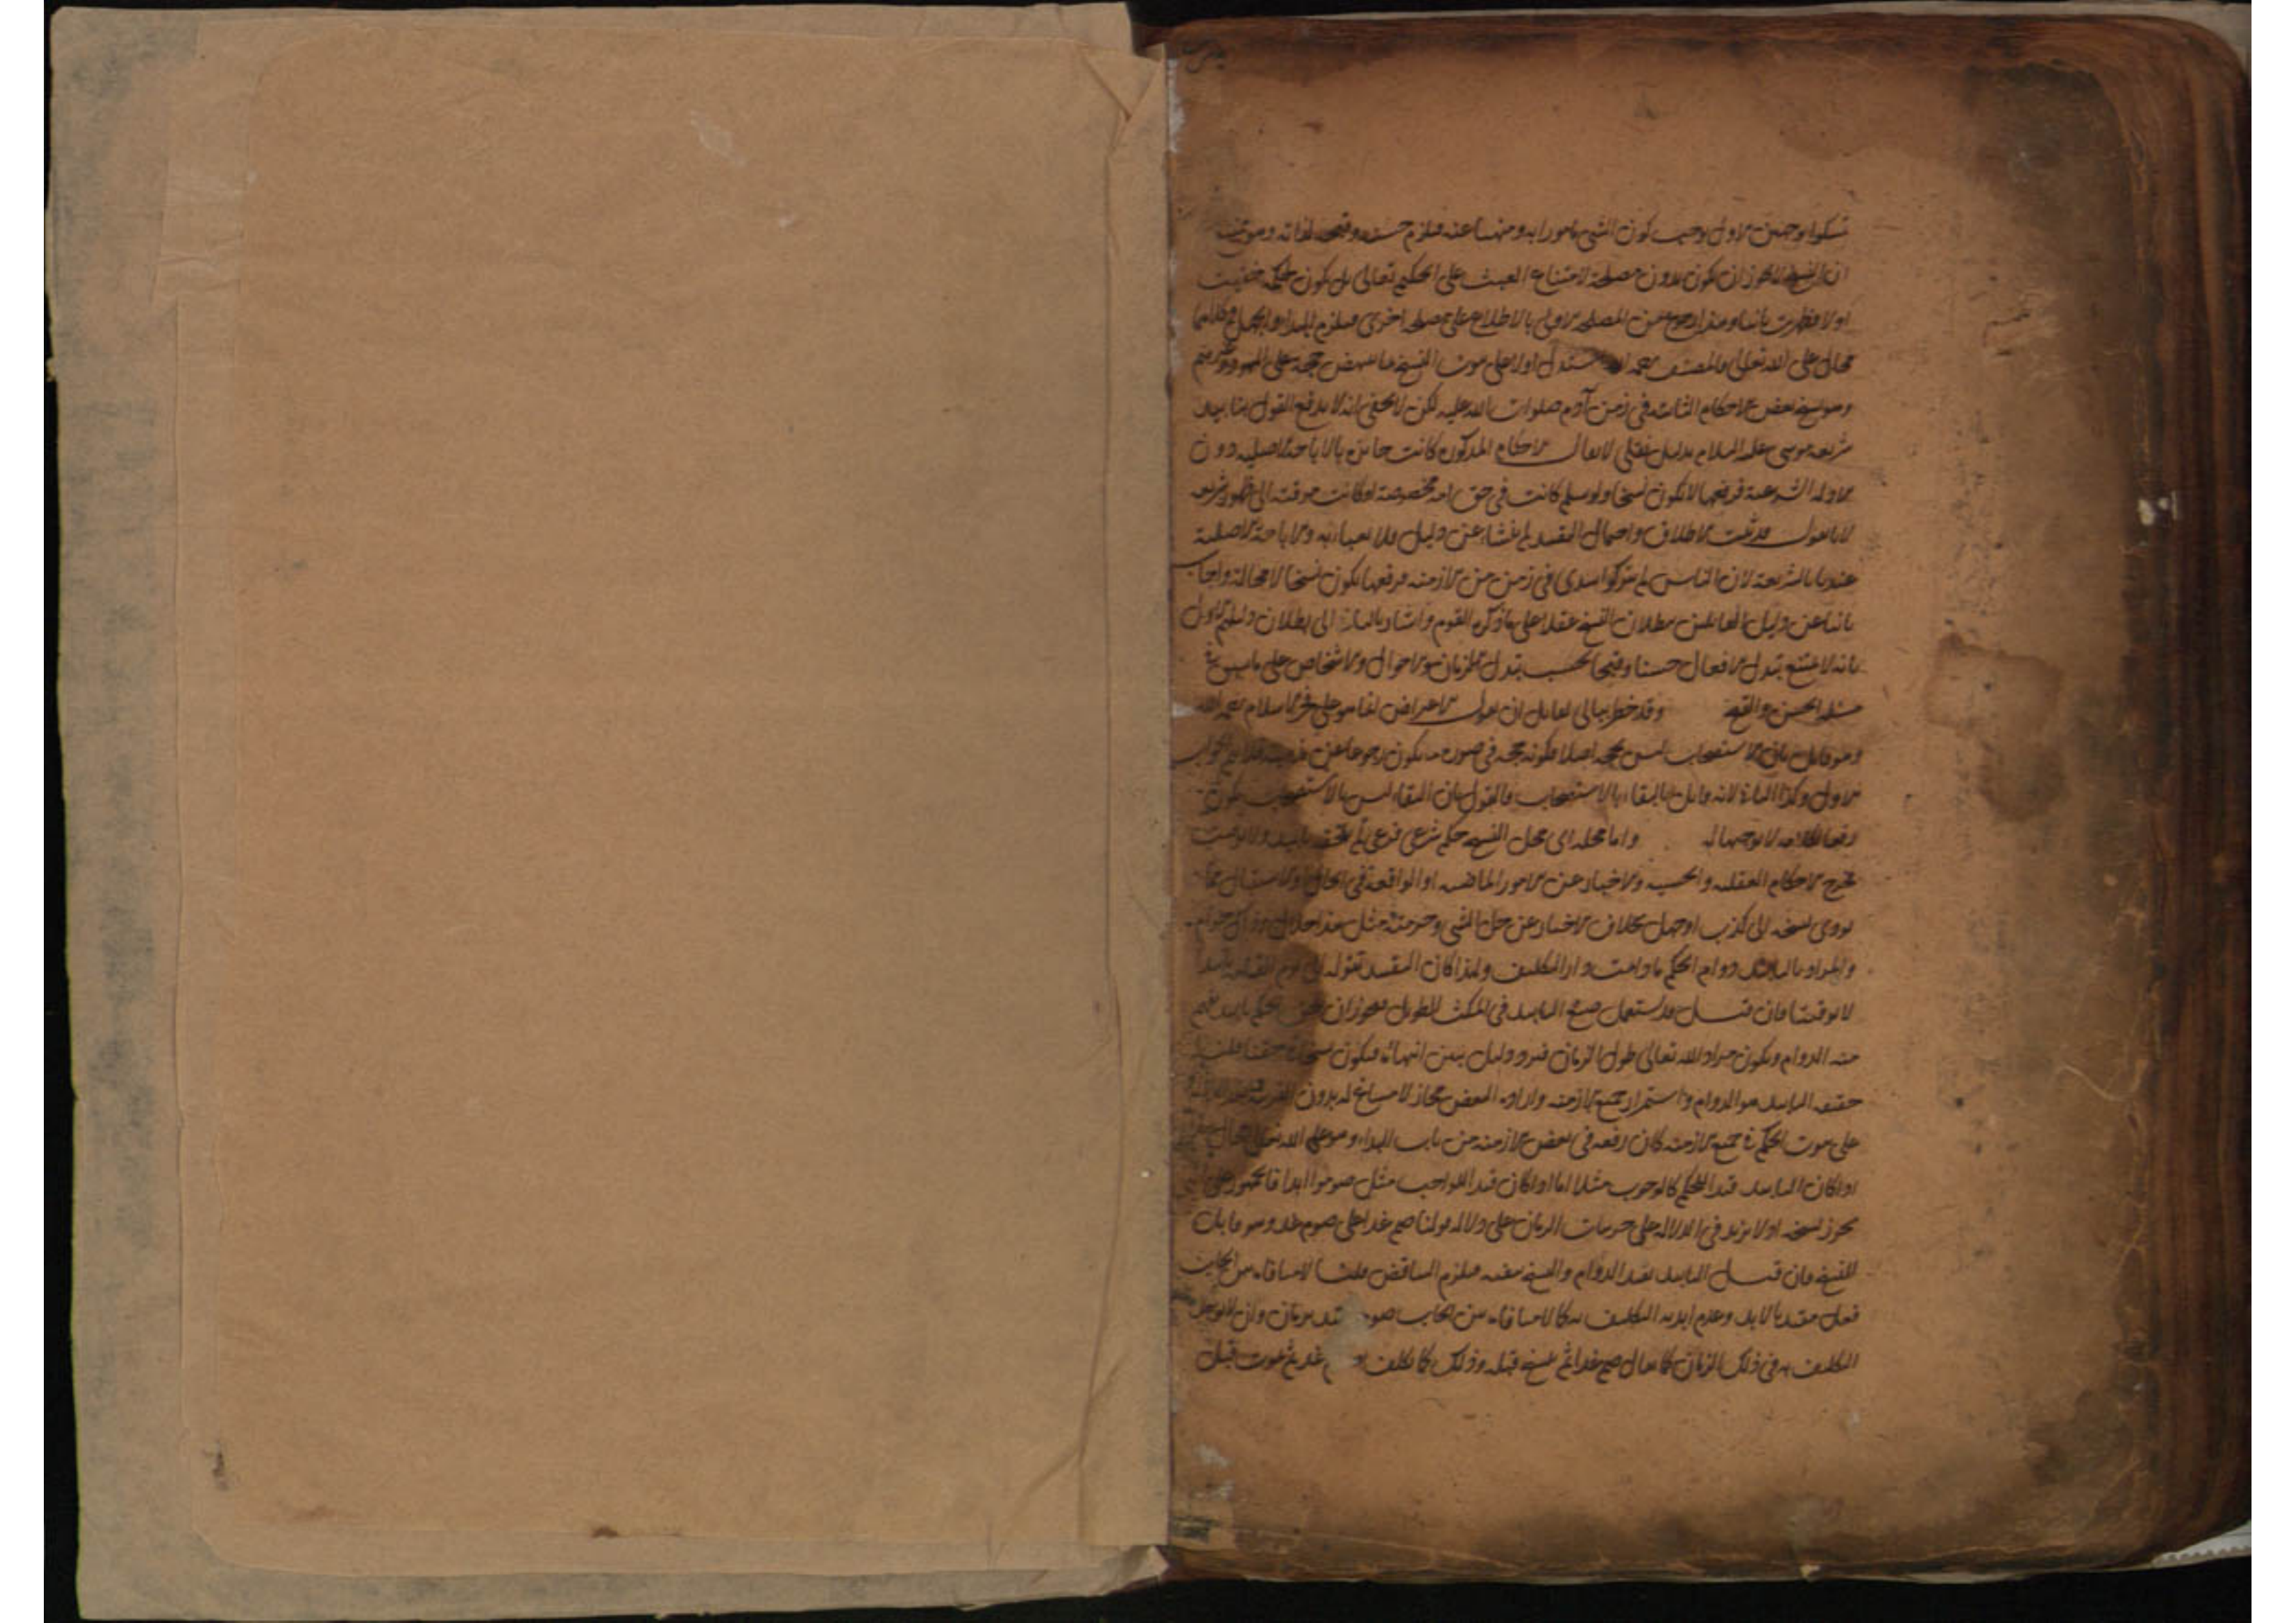 تمسكوا بوجهين الاول يوجب كون الشئ مامورا به ومنهيا عنه فيلزم حسنه وقبحه لذاته وهو ممتنع
ان النسخ لا يجوز ان يكون بدون مصلحة لامتناع العبث على الحكيم تعالى بل يكون لحكمة خفيت
اولا فظهرت ثانيا وهذا رجوع عن المصلحة الاولى بالاطلاع على مصلحة اخرى فيلزم البداء والجهل وكلاهما
محال على الله تعالى والمصنف رحمه الله استدل اولا على ثبوت النسخ بما ينهض حجة على اليهود وغيرهم
وهو نسخ بعض الاحكام الثابتة في زمن آدم صلوات الله عليه لكن لا يخفى انه لا يدفع القول بتابيد
شريعة موسى عليه السلام بدليل نقلي لا يقال الاحكام المذكورة كانت جائزة بالاباحة الاصلية دون
الادلة الشرعية فرفعها لا يكون نسخا ولو سلم كانت في حق امة مخصوصة او كانت موقتة الى ظهور شريعة
لانا نقول قد ثبت الاطلاق واحتمال التقييد لم ينشأ عن دليل فلا يعبأ به والاباحة الاصلية
عندنا بالشريعة لان الناس لم يتركوا سدى في زمن من الازمنة فرفعها يكون نسخا لا محالة واجاب
ثانيا عن دليل القائلين ببطلان النسخ عقلا على ما ذكره القوم واشار الى بطلان دليلهم الاول
بانه لا يمتنع تبدل الافعال حسنا وقبحا بحسب تبدل الازمان والاحوال والاشخاص على ما سبق في
مسئلة الحسن والقبح وقد خطر ببالي لقائل ان يقول الاعتراض انما هو على فخر الاسلام رحمه الله
وهو قائل بان الاستصحاب ليس بحجة اصلا فكونه حجة في صورة يكون رجوعا عن مذهبه فلا يتم الجواب
الاول وكذا الثاني لانه قائل بالبقاء بالاستصحاب فالقول بان البقاء ليس بالاستصحاب يكون
رفعا لكلامه لا توجيها له واما محله اي محل النسخ حكم شرعي فرعي لم يلحقه تابيد ولا توقيت
فخرج الاحكام العقلية والحسية والاخبار عن الامور الماضية او الواقعة في الحال والاستقبال مما
يؤدي نسخه الى كذب او جهل بخلاف الاخبار عن حل الشئ وحرمته مثل هذا حلال وذاك حرام
والمراد بالتابيد دوام الحكم ما دامت دار التكليف ولهذا كان التقييد بقوله الى يوم القيمة تابيدا
لا توقيتا فان قيل قد يستعمل صيغ التابيد في المكث الطويل فيجوز ان يلحق الحكم تابيد يفهم
منه الدوام ويكون مراد الله تعالى طول الزمان فيرد دليل يبين انتهاءه فيكون نسخا في حقنا قلنا
حقيقة التابيد هو الدوام واستمرار جميع الازمنة وارادة البعض مجاز لا مساغ له بدون القرينة
على ثبوت الحكم في جميع الازمنة كان رفعه في بعض الازمنة من باب البداء وهو على الله تعالى محال
اذا كان التابيد قيدا للحكم كالوجوب مثلا اما اذا كان قيدا للواجب مثل صوموا ابدا فالجمهور على
يجوز نسخه اذ لا يزيد في الدلالة على جزئيات الزمان على دلالة قولنا صم غدا على صوم غد وهو قابل
للنسخ فان قيل التابيد يفيد الدوام والنسخ ينفيه فيلزم التناقض قلنا لا منافاة بين ايجاب
فعل مقيد بالابد وعدم ابدية التكليف به كما لا منافاة بين ايجاب صوم مقيد بزمان وان لا يوجد
التكليف به في ذلك الزمان كما يقال صم غدا ثم ينسخ قبله وذلك كما يكلف غد ثم يموت قبل